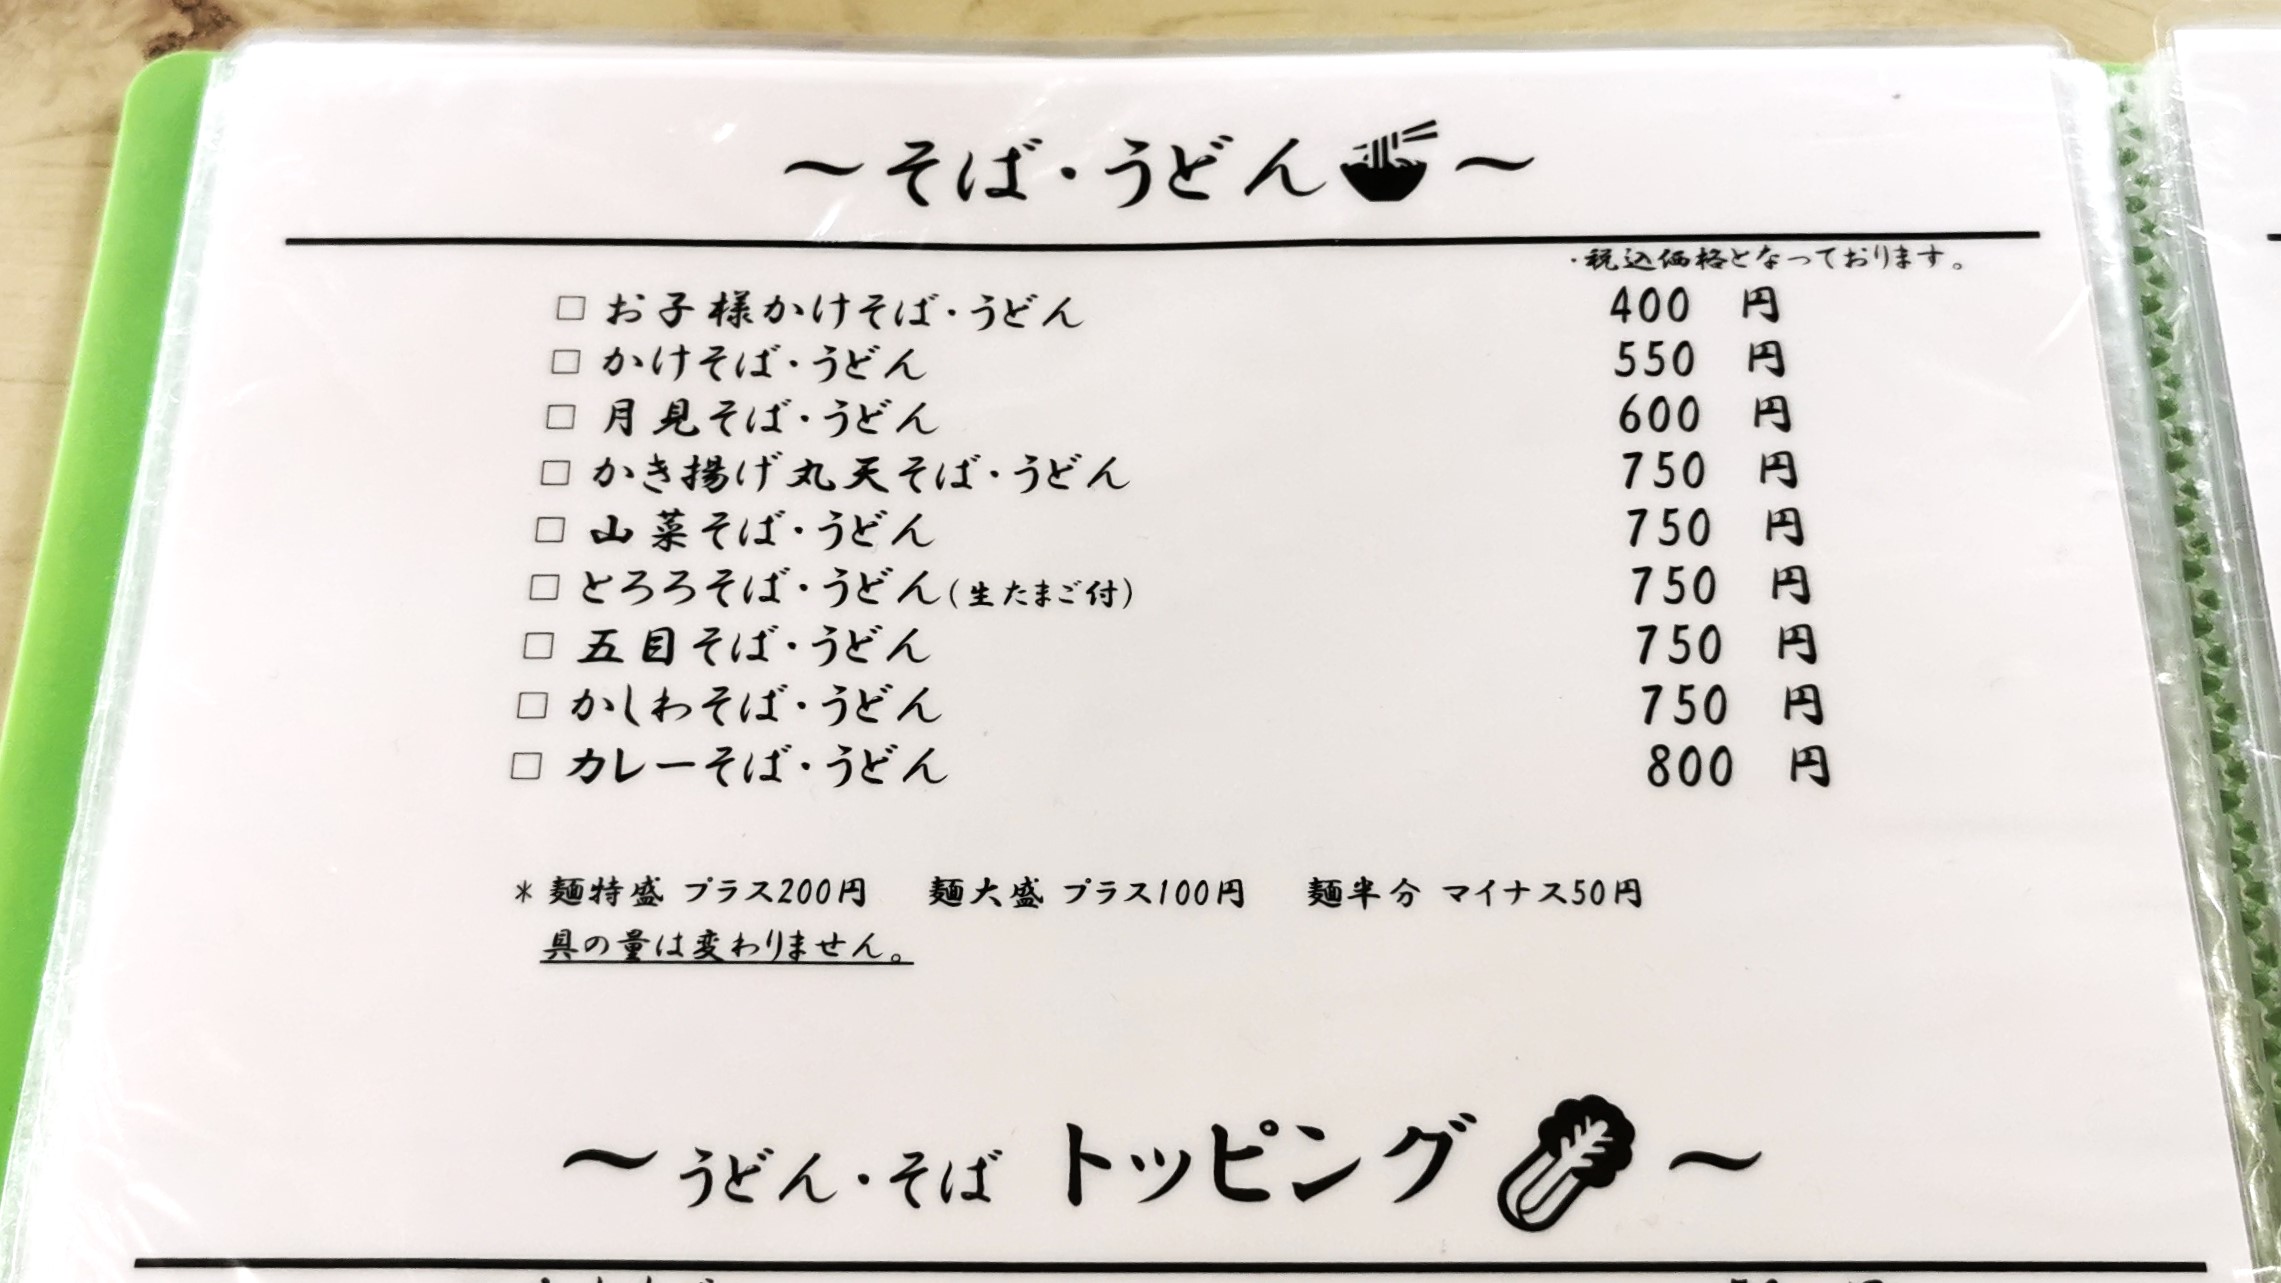 ～そば・うどん～
・税込価格となっております。
□ お子様かけそば・うどん 400 円
□ かけそば・うどん 550 円
□ 月見そば・うどん 600 円
□ かき揚げ丸天そば・うどん 750 円
□ 山菜そば・うどん 750 円
□ とろろそば・うどん(生たまご付) 750 円
□ 五目そば・うどん 750 円
□ かしわそば・うどん 750 円
□ カレーそば・うどん 800 円
* 麺特盛 プラス200円 麺大盛 プラス100円 麺半分 マイナス50円
具の量は変わりません。
～うどん・そば トッピング～